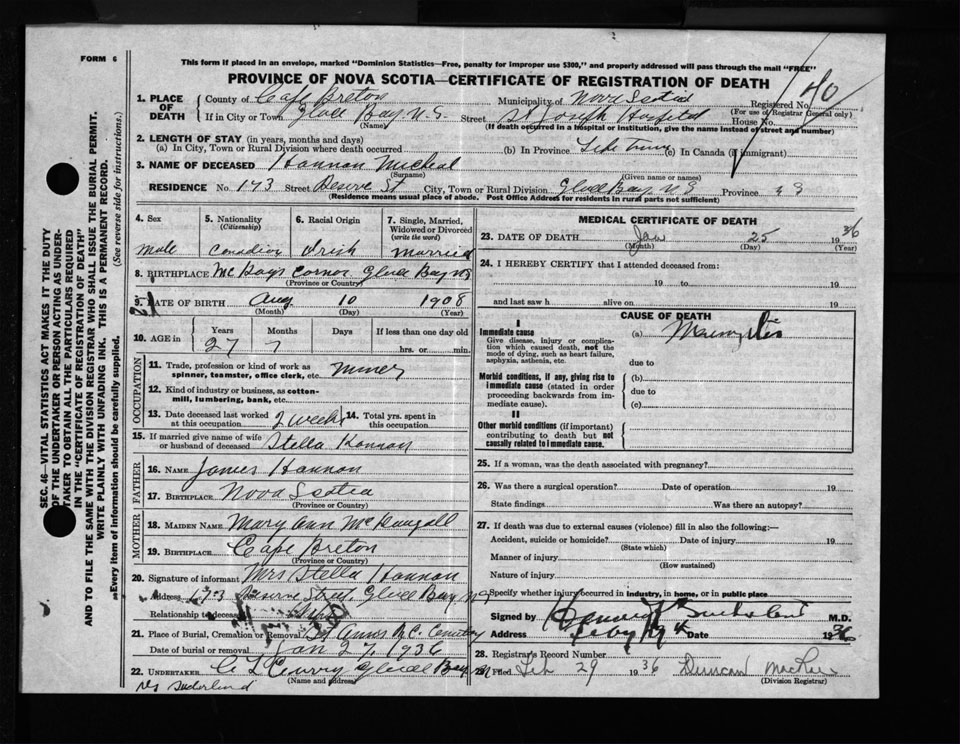 FORM 6
This form if placed in an envelope, marked "Dominion Statistics—Free, penalty for improper use $300," and properly addressed will pass through the mail "FREE"
PROVINCE OF NOVA SCOTIA—CERTIFICATE OF REGISTRATION OF DEATH
1. PLACE OF DEATH County of Cape Breton Municipality of Nova Scotia Registered No.
(For use of Registrar General only)
If in City or Town Glace Bay N.S. Street St Joseph Hospital House No.
(Name) (If death occurred in a hospital or institution, give the name instead of street and number)
2. LENGTH OF STAY (in years, months and days)
(a) In City, Town or Rural Division where death occurred (b) In Province Life Time (c) In Canada (if immigrant)
3. NAME OF DECEASED Hannan Micheal
(Surname) (Given name or names)
RESIDENCE No. 173 Street St City, Town or Rural Division Glace Bay N S Province N S
(Residence means usual place of abode. Post Office Address for residents in rural parts not sufficient)
4. Sex 5. Nationality (Citizenship) 6. Racial Origin 7. Single, Married, Widowed or Divorced (write the word)
male Canadian Irish married
8. BIRTHPLACE McKays Corner Glace Bay NS
(Province or Country)
9. DATE OF BIRTH Aug 10 1908
(Month) (Day) (Year)
10. AGE in Years Months Days If less than one day old
27 hrs. or min.
OCCUPATION
11. Trade, profession or kind of work as spinner, teamster, office clerk, etc. miner
12. Kind of industry or business, as cotton-mill, lumbering, bank, etc.
13. Date deceased last worked at this occupation 2 weeks 14. Total yrs. spent in this occupation
15. If married give name of wife or husband of deceased Stella Hannan
FATHER
16. NAME James Hannan
17. BIRTHPLACE Nova Scotia
(Province or Country)
MOTHER
18. MAIDEN NAME Mary Ann McDougall
19. BIRTHPLACE Cape Breton
(Province or Country)
20. Signature of informant Mrs Stella Hannan
Address 173 Street, Glace Bay NS
Relationship to deceased
21. Place of Burial, Cremation or Removal St Anns R.C. Cemetery
Date of burial or removal Jan 27 1936
22. UNDERTAKER C L Curry Glace Bay
(Name and address)
MEDICAL CERTIFICATE OF DEATH
23. DATE OF DEATH Jan 25 1936
(Month) (Day) (Year)
24. I HEREBY CERTIFY that I attended deceased from:
19 to 19
and last saw h alive on 19
CAUSE OF DEATH
I
Immediate cause (a) Meningitis
Give disease, injury, or complication which caused death, not the mode of dying, such as heart failure, asphyxia, asthenia, etc.
due to
Morbid conditions, if any, giving rise to immediate cause (stated in order proceeding backwards from immediate cause).
(b)
due to
(c)
II
Other morbid conditions (if important) contributing to death but not causally related to immediate cause.
25. If a woman, was the death associated with pregnancy?
26. Was there a surgical operation? Date of operation 19
State findings Was there an autopsy?
27. If death was due to external causes (violence) fill in also the following:—
Accident, suicide or homicide? Date of injury 19
(State which)
Manner of injury
(How sustained)
Nature of injury
Specify whether injury occurred in industry, in home, or in public place
Signed by Sutherland M.D.
Address Date Feby 19th 1936
28. Registrar's Record Number
Filed Feb 29 1936 Duncan
(Division Registrar)
SEC. 46—VITAL STATISTICS ACT MAKES IT THE DUTY OF THE UNDERTAKER OR PERSON ACTING AS UNDERTAKER TO OBTAIN ALL THE PARTICULARS REQUIRED IN THE "CERTIFICATE OF REGISTRATION OF DEATH" AND TO FILE THE SAME WITH THE DIVISION REGISTRAR WHO SHALL ISSUE THE BURIAL PERMIT.
WRITE PLAINLY WITH UNFADING INK. THIS IS A PERMANENT RECORD.
Every item of information should be carefully supplied. (See reverse side for instructions.)